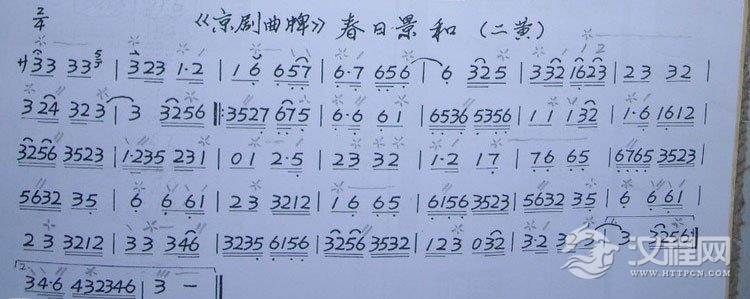 2/4 《京剧曲牌》春日景和（二黄）
廿33 33 5 | 323 1·2 | 16 657 | 6·7 656 | 6 325 | 332 1623 | 23 32 |
324 323 | 3 3256 ‖: 3527 675 | 6·6 61 | 6536 5356 | 11 132 | 1·6 1612 |
3256 3523 | 1·235 231 | 01 2·5 | 23 32 | 1·2 17 | 76 65 | 6765 3523 |
5632 35 | 6 661 | 23 3212 | 16 65 | 6156 3523 | 5632 35 | 6 661 |
23 3212 | 33 346 | 3235 6156 | 3256 3532 | 123 032 | 3·2 3 | 3 3256 :‖
2. 34·6 432346 | 3 - ‖
汉程网
WWW.HTTPCN.COM